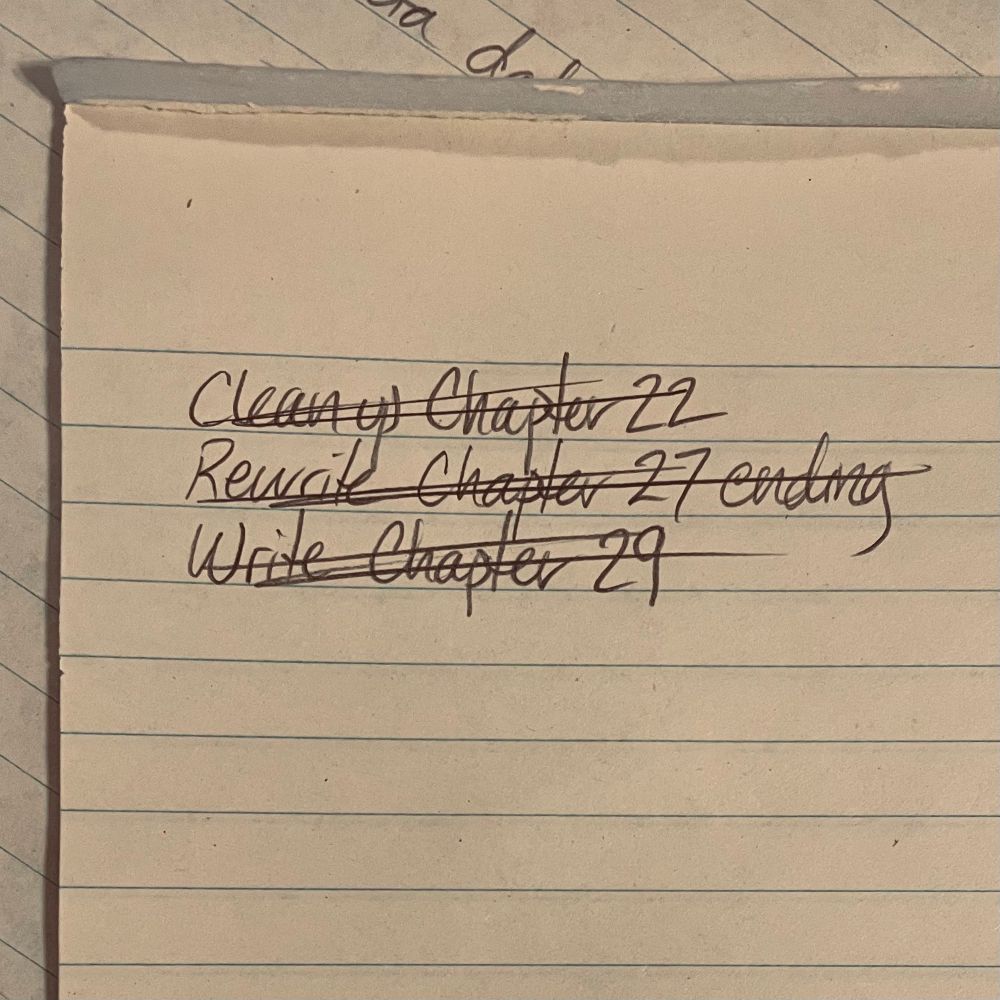 Clean up Chapter 22
Rewrite Chapter 27 ending
Write Chapter 29